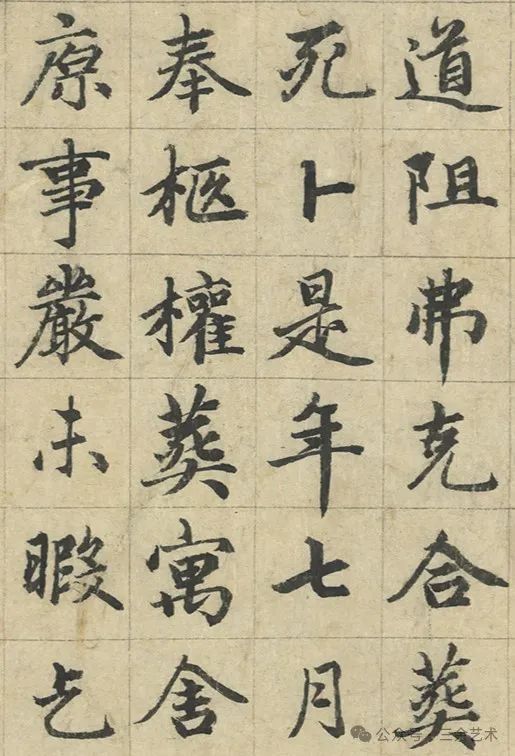 道阻弗克合葬
死卜是年七月
奉柩權葬寓舍
原事嚴未暇乞
公众号 艺术